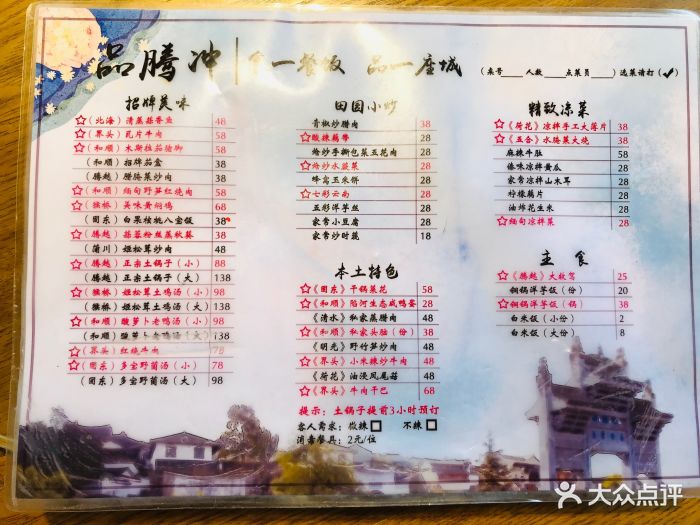 品腾冲 食一餐饭 品一座城
(桌号____人数____点菜员____)选菜请打(✓)
招牌美味
☆(北海)清蒸蒜香鱼 48
☆(界头)瓦片牛肉 58
☆(和顺)木斯拉茄猪脚 58
(和顺)招牌茄盒 38
(腾越)腊腌菜炒肉 38
☆(和顺)缅甸野笋红烧肉 58
☆(猴桥)美味黄焖鸡 68
(团东)白果核桃八宝饭 38
☆(腾越)蒜蓉粉丝蒸软葵 38
(蒲川)姬松茸炒肉 48
☆(腾越)正宗土锅子(小) 88
☆(腾越)正宗土锅子(大) 138
☆(猴桥)姬松茸土鸡汤(小) 98
(猴桥)姬松茸土鸡汤(大) 138
☆(和顺)酸萝卜老鸭汤(小) 98
(和顺)酸萝卜老鸭汤(大) 138
☆(界头)红烧牛肉 78
☆(团东)多宝野菌汤(小) 78
(团东)多宝野菌汤(大) 98
田园小炒
青椒炒腊肉 38
☆酸辣藕带 28
炝炒手撕包菜五花肉 28
☆炝炒水蕨菜 28
蜂窝玉米饼 28
☆七彩云南 28
五彩洋芋丝 28
家常小豆腐 28
家常炒时蔬 18
本土特色
☆《团东》干锅菜花 58
☆《和顺》陷河生态咸鸭蛋 28
《清水》私家蒸腊肉 48
☆《和顺》私家头脑(份) 38
《明光》野竹笋炒肉 48
☆《界头》小米辣炒牛肉 48
《荷花》油浸凤尾菇 48
☆《界头》牛肉干巴 68
提示:土锅子提前3小时预订
客人需求:微辣□ 不辣□
消毒餐具:2元/位
精致凉菜
☆《荷花》凉拌手工大薄片 38
☆《五合》水腌菜火烧 38
麻辣牛肚 58
傣味凉拌黄瓜 28
家常凉拌山木耳 28
柠檬藕片 28
油炸花生米 28
☆缅甸凉拌菜 28
主食
☆《腾越》大救驾 25
铜锅洋芋饭(份) 20
☆铜锅洋芋饭(锅) 38
白米饭(小份) 2
白米饭(大份) 8
大众点评